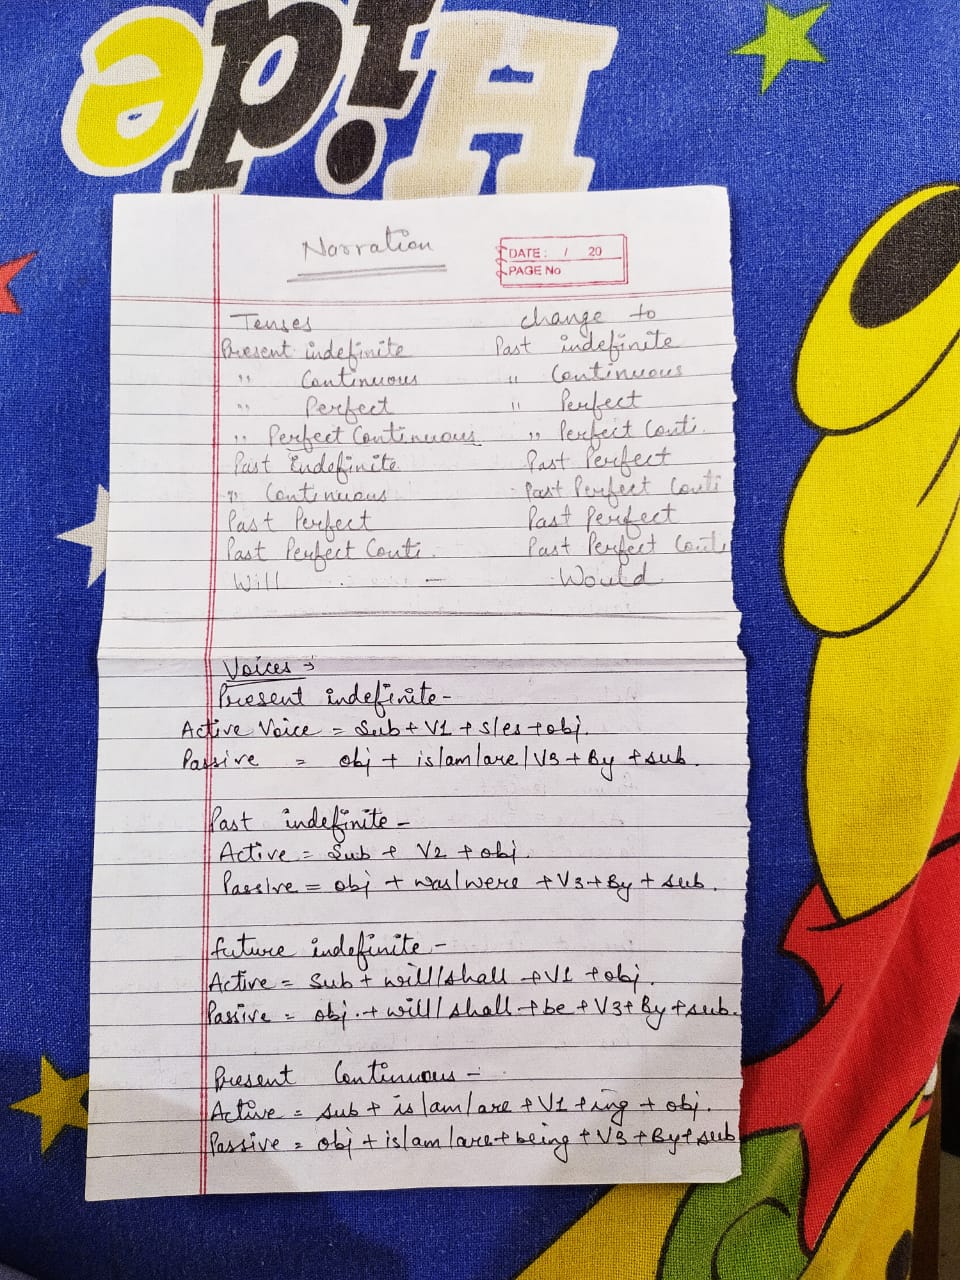 Hide
Narration
DATE: / 20
PAGE No
Tenses change to
Present indefinite Past indefinite
" Continuous " Continuous
" Perfect " Perfect
" Perfect Continuous " Perfect Conti.
Past Indefinite Past Perfect
" Continuous Past Perfect Conti
Past Perfect Past Perfect
Past Perfect Conti. Past Perfect Conti
Will — Would
Voices →
Present indefinite-
Active Voice = Sub + V1 + s/es + obj.
Passive = obj + is/am/are/V3 + By + sub.
Past indefinite -
Active = Sub + V2 + obj.
Passive = obj + was/were + V3 + By + sub.
future indefinite -
Active = Sub + will/shall + V1 + obj.
Passive = obj. + will/shall + be + V3 + By + sub.
Present Continuous -
Active = sub + is/am/are + V1 + ing + obj.
Passive = obj + is/am/are + being + V3 + By + sub